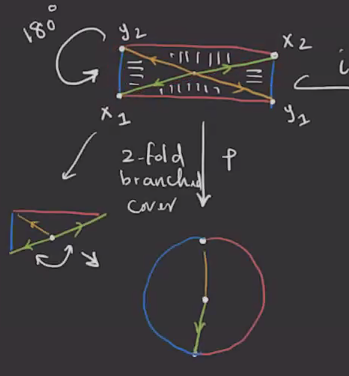 180°
y2
x2
i
x1
y1
2-fold
branched
cover
p